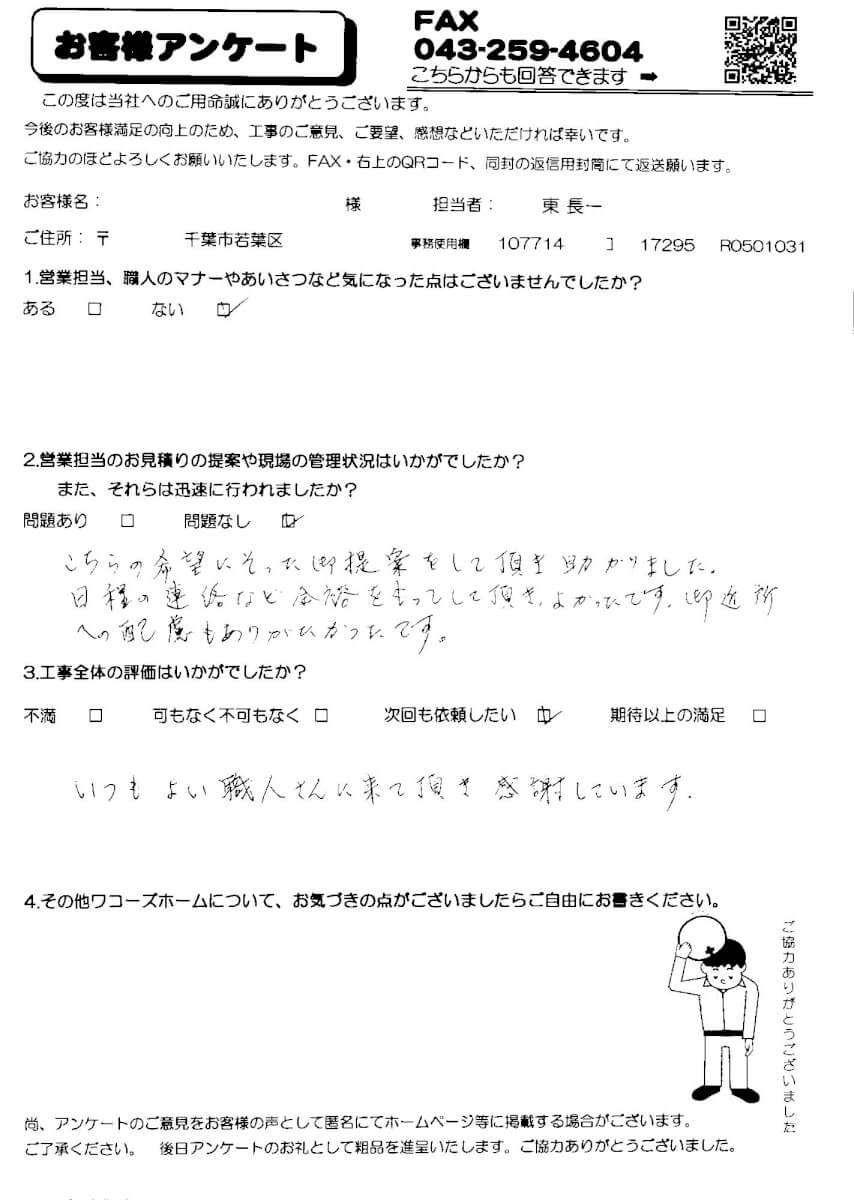 お客様アンケート
FAX
043-259-4604
こちらからも回答できます ➡
この度は当社へのご用命誠にありがとうございます。
今後のお客様満足の向上のため、工事のご意見、ご要望、感想などいただければ幸いです。
ご協力のほどよろしくお願いいたします。FAX・右上のQRコード、同封の返信用封筒にて返送願います。
お客様名： 様 担当者： 東 長一
ご住所：〒 千葉市若葉区 事務使用欄 107714 ］ 17295 R0501031
1.営業担当、職人のマナーやあいさつなど気になった点はございませんでしたか？
ある □ ない ☑
2.営業担当のお見積りの提案や現場の管理状況はいかがでしたか？
また、それらは迅速に行われましたか？
問題あり □ 問題なし ☑
こちらの希望にそった御提案をして頂き助かりました。
日程の連絡など余裕をもってして頂き、よかったです。御近所
への配慮もありがたかったです。
3.工事全体の評価はいかがでしたか？
不満 □ 可もなく不可もなく □ 次回も依頼したい ☑ 期待以上の満足 □
いつもよい職人さんに来て頂き感謝しています。
4.その他ワコーズホームについて、お気づきの点がございましたらご自由にお書きください。
ご協力ありがとうございました
尚、アンケートのご意見をお客様の声として匿名にてホームページ等に掲載する場合がございます。
ご了承ください。 後日アンケートのお礼として粗品を進呈いたします。ご協力ありがとうございました。